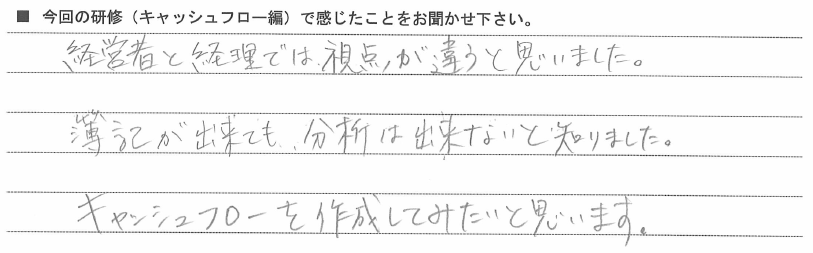 ■ 今回の研修（キャッシュフロー編）で感じたことをお聞かせ下さい。
経営者と経理では、視点が違うと思いました。
簿記が出来ても、分析は出来ないと知りました。
キャッシュフローを作成してみたいと思います。